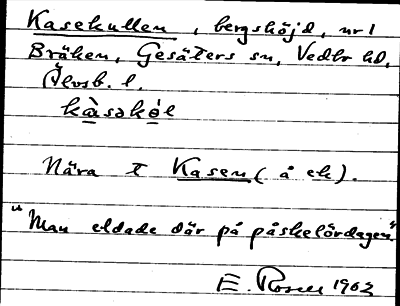 Kasekullen, bergshöjd, nr 1
Bräken, Gesäters sn, Vedbo hd,
Älvsb. l.
kàsəkɵ́l
Nära t Kasen (å ek).
"Man eldade där på påskelördagen"
E. Rosell 1962